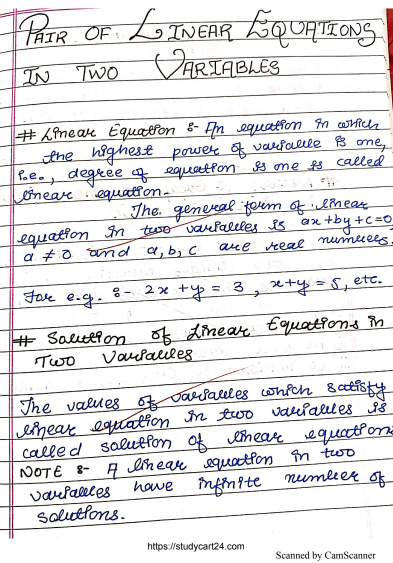 PAIR OF LINEAR EQUATIONS
IN TWO VARIABLES
# Linear Equation :- An equation in which
the highest power of variable is one,
i.e., degree of equation is one is called
linear equation.
The general form of linear
equation in two variables is ax+by+c=0,
a ≠ 0 and a, b, c are real numbers.
For e.g. :- 2x + y = 3, x+y = 5, etc.
# Solution of Linear Equations in
Two Variables
The values of variables which satisfy
linear equation in two variables is
called solution of linear equations
NOTE :- A linear equation in two
variables have infinite number of
solutions.
https://studycart24.com
Scanned by CamScanner